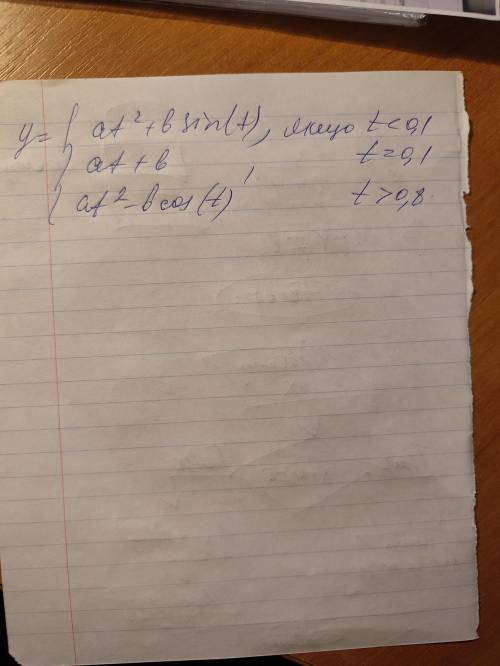 y = { at² + b sin(t), якщо t < 0,1
at + b, t = 0,1
at² - b cos(t) t > 0,8